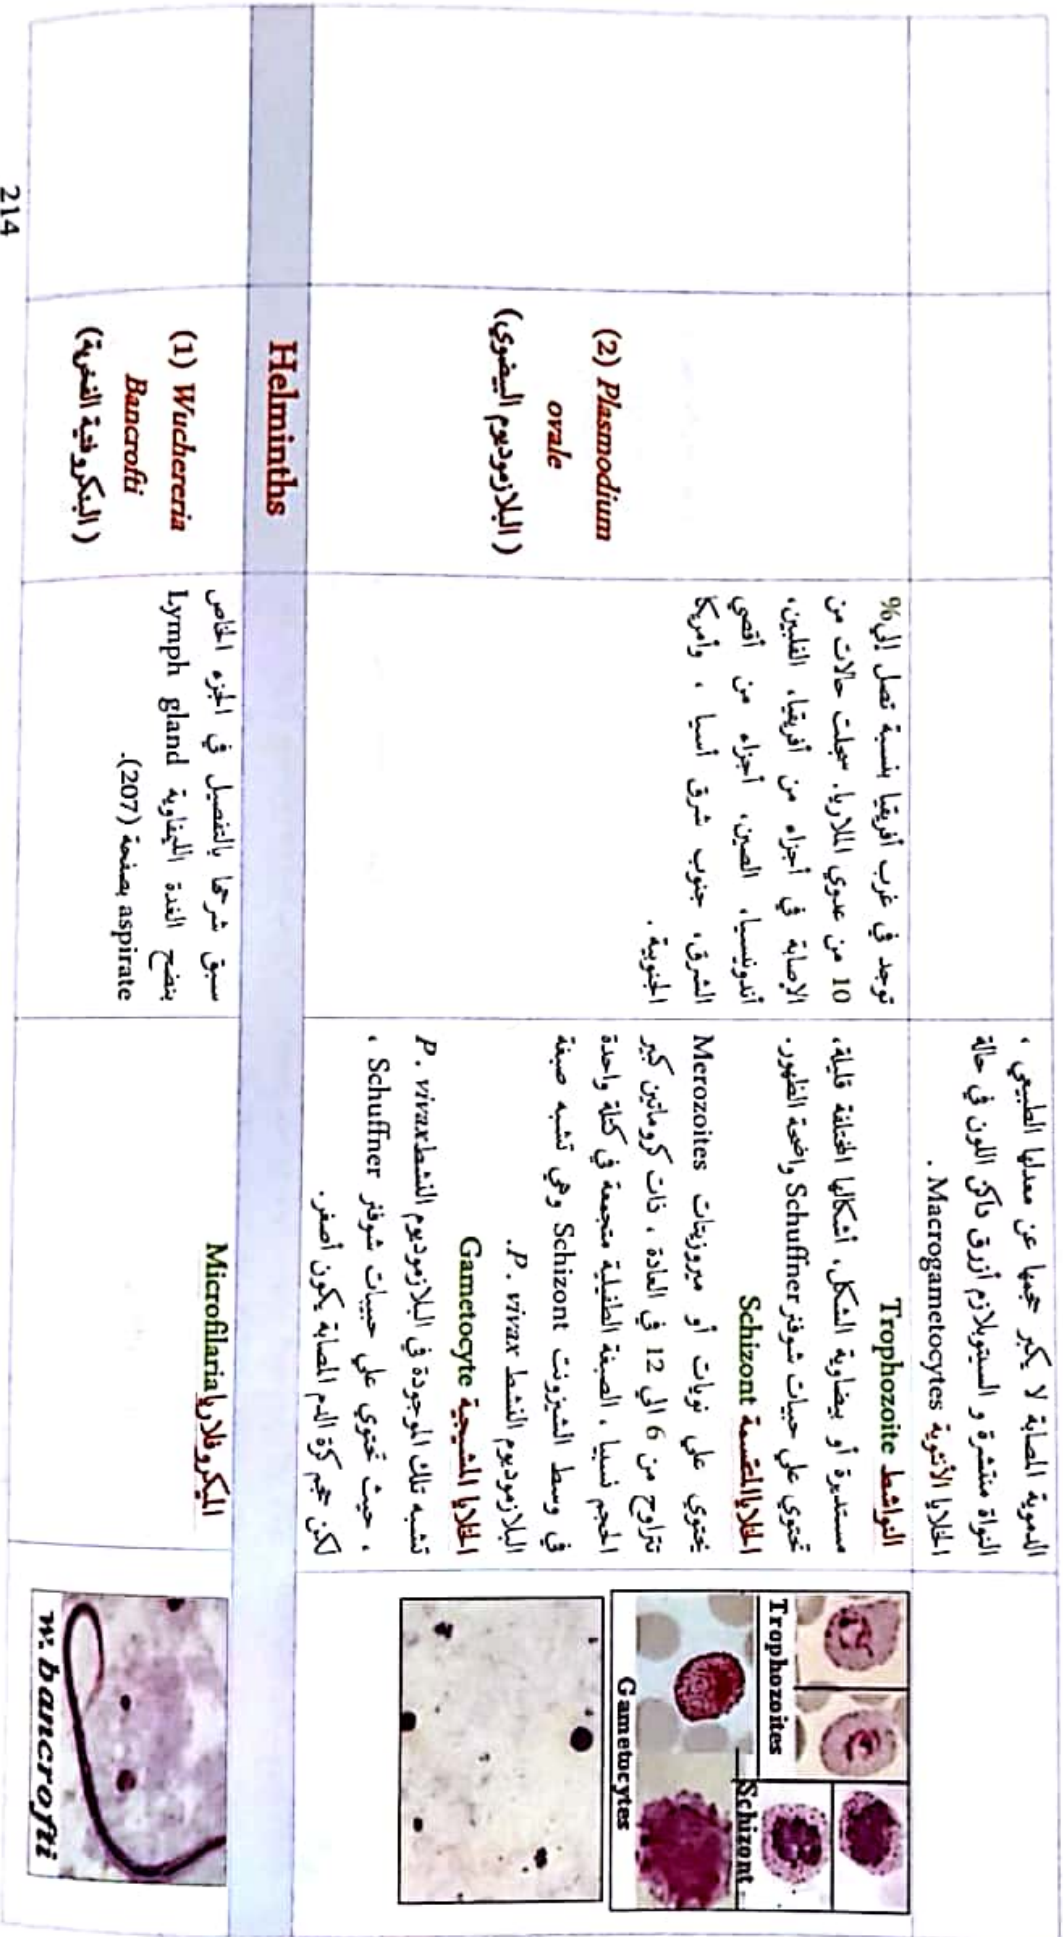 الدموية المصابة لا يكبر حجمها عن معدلها الطبيعي ،
النواة منتشرة و السيتوبلازم أزرق داكن اللون في حالة
الخلايا الأنثوية Macrogametocytes .
(2) Plasmodium
ovale
( البلازموديوم البيضوي)
توجد في غرب أفريقيا بنسبة تصل إلي%
10 من عدوي الملاريا. سجلت حالات من
الإصابة في أجزاء من أفريقيا، الفلبين،
أندونيسيا، الصين، أجزاء من أقصي
الشرق، جنوب شرق أسيا ، وأمريكا
الجنوبية .
النواشط Trophozoite
مستديرة أو بيضاوية الشكل، أشكالها المختلفة قليلة،
تحتوي علي حبيبات شوفنر Schuffner واضحة الظهور.
الخلايا المنقسمة Schizont
يحتوي علي نويات أو ميروزيتات Merozoites
تتراوح من 6 الي 12 في العادة ، ذات كروماتين كبير
الحجم نسبيا ، الصبغة الطفيلية متجمعة في كتلة واحدة
في وسط الشيزونت Schizont وهي تشبه صبغة
البلازموديوم النشط P. vivax.
الخلايا المشيجية Gametocyte
تشبه تلك الموجودة في البلازموديوم النشطP. vivax
، حيث تحتوي علي حبيبات شوفنر Schuffner ،
لكن حجم كرة الدم المصابة يكون أصغر.
Trophozoites
Schizont
Gametocytes
Helminths
(1) Wuchereria
Bancrofti
( البنكروفتية الفخرية)
سبق شرحها بالتفصيل في الجزء الخاص
بنضح الغدة الليمفاوية Lymph gland
aspirate بصفحة (207).
الميكروفلارياMicrofilaria
w. bancrofti
214